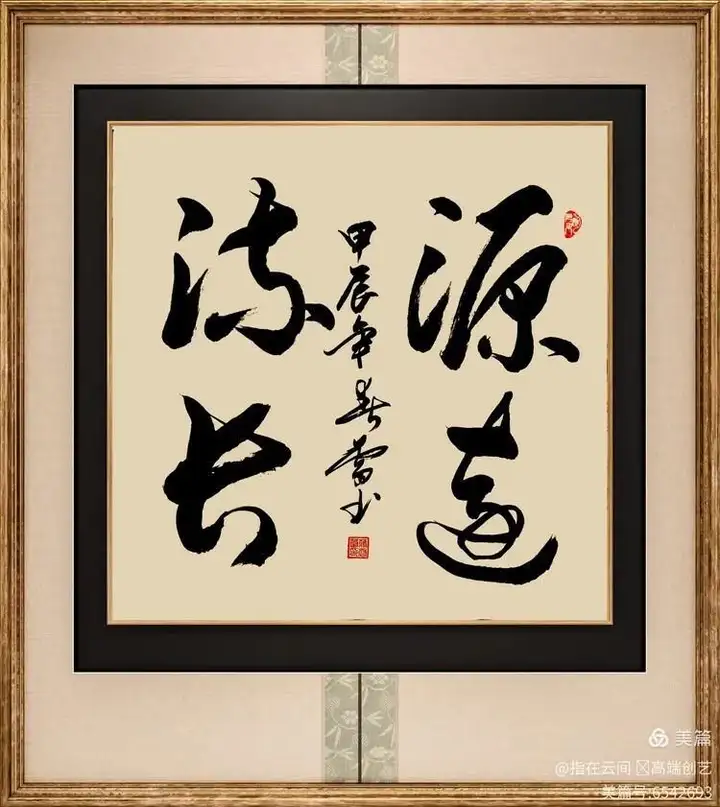 源遠
流长
甲辰年春书
美篇
@指在云间 高端创艺
美篇号:6542693